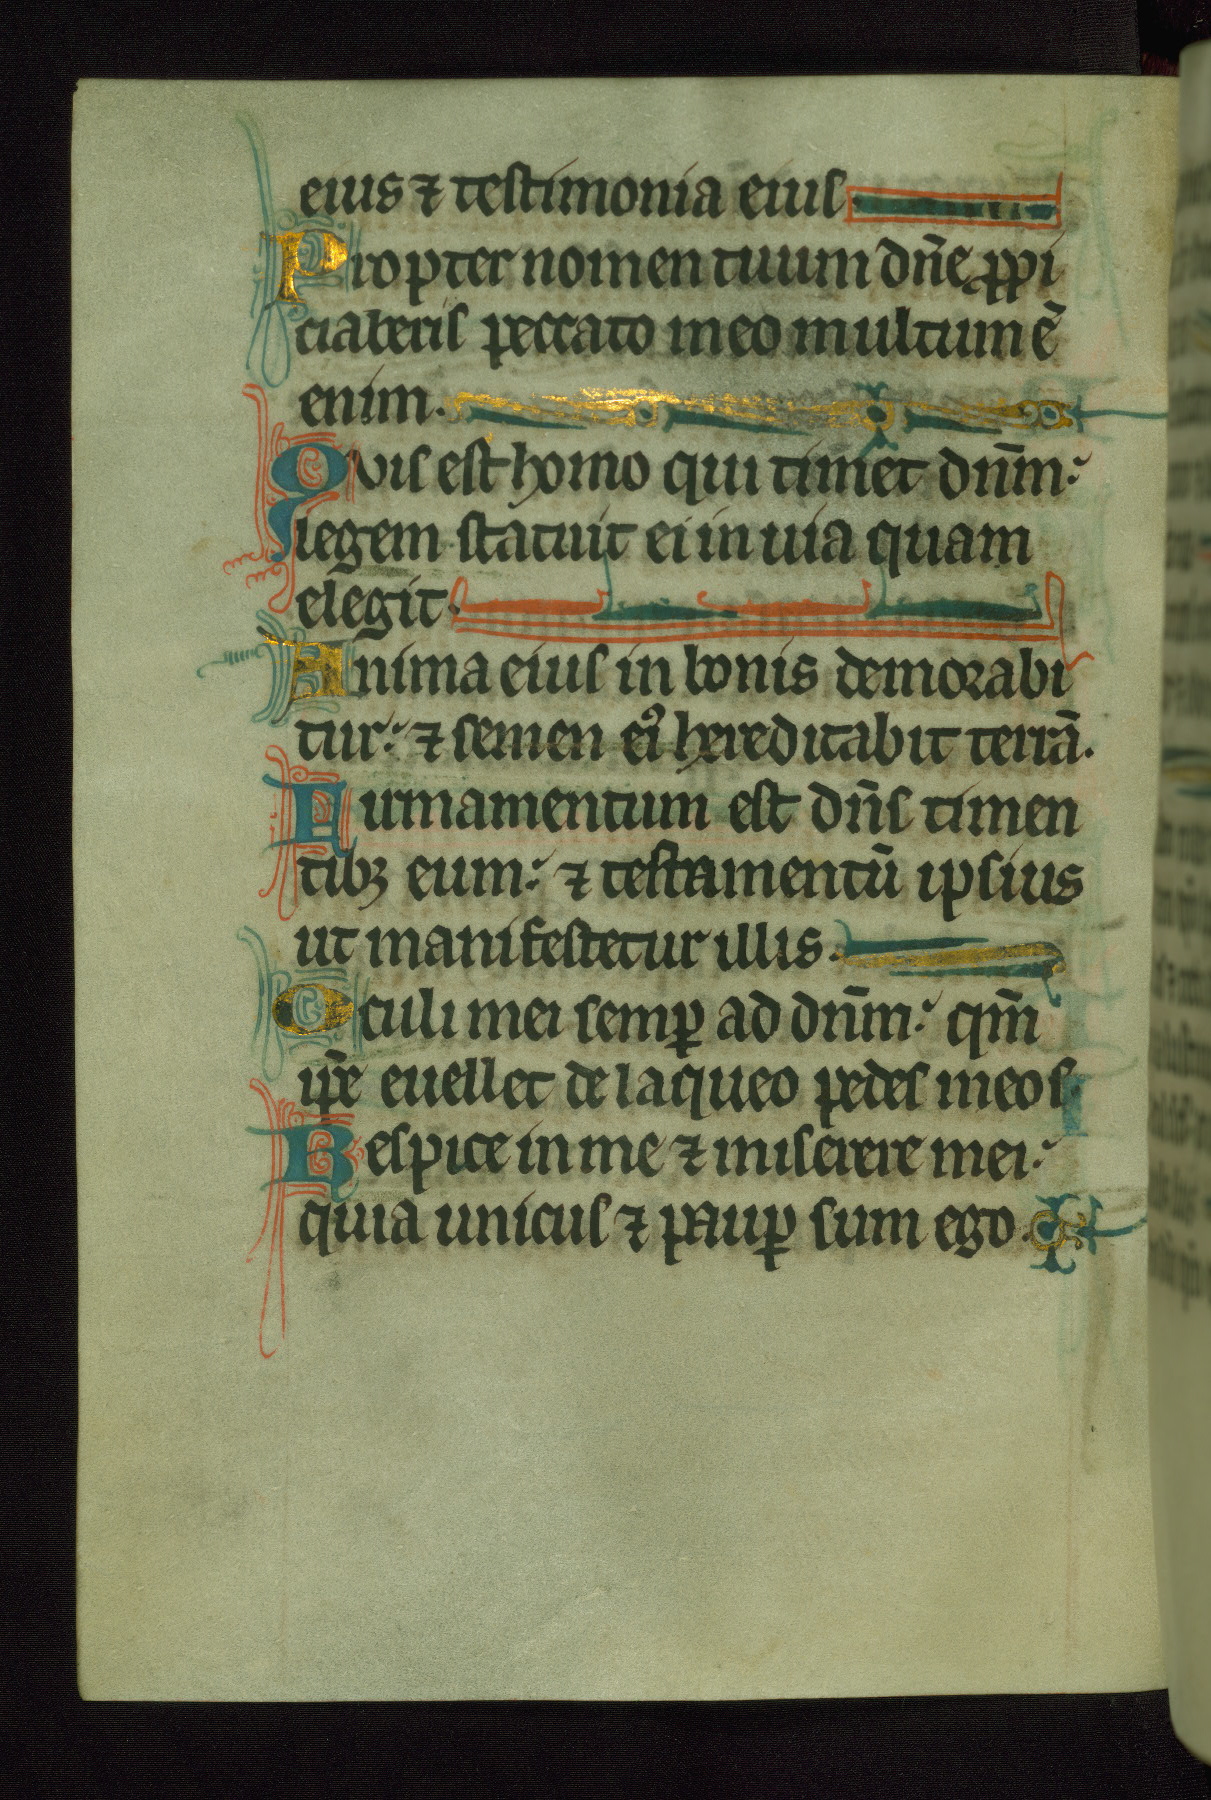 eius ⁊ testimonia eius
Propter nomen tuum dn̄e ꝓpi
ciaberis peccato meo multum ē
enim.
Quis est homo qui timet dn̄m:
legem statuit ei in uia quam
elegit.
Anima eius in bonis demorabi
tur: ⁊ semen eiꝰ hereditabit terrā.
Firmamentum est dn̄s timen
tibꝫ eum: ⁊ testamentū ipsius
ut manifestetur illis.
Oculi mei semꝑ ad dn̄m: qm̄
ip̄e euellet de laqueo pedes meos.
Respice in me ⁊ miserere mei:
quia unicus ⁊ pauꝑ sum ego.